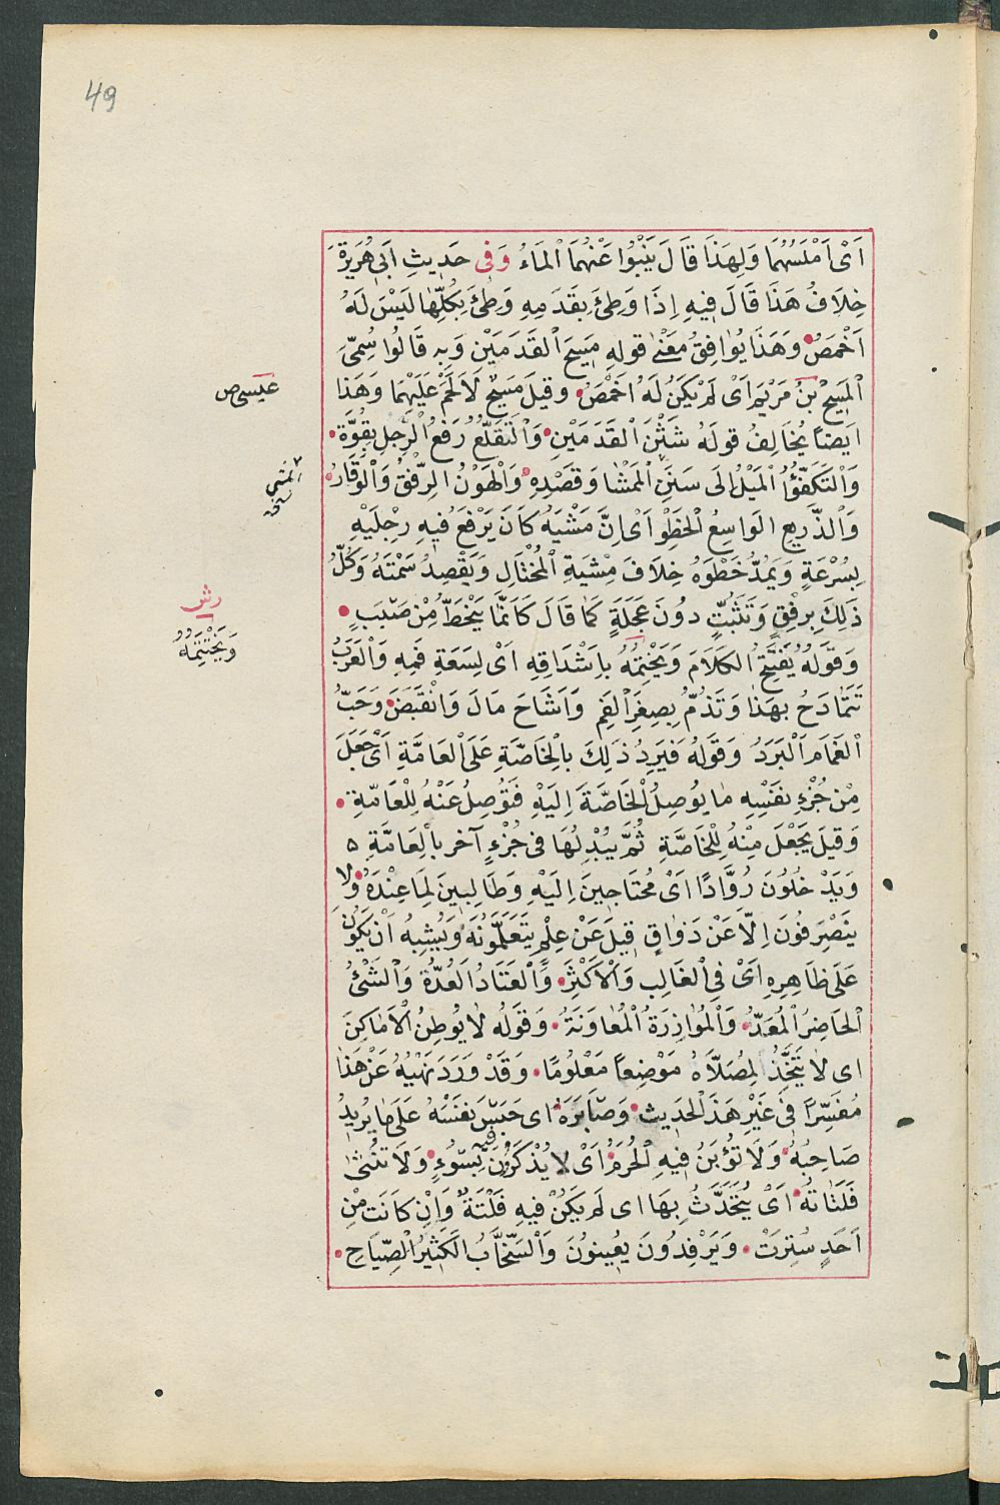 49
اَىْ اَمْلَسُهُمَا وَلِهَذَا قَالَ يَنْبُوا عَنْهُمَا ٱلمَاءُ وَفِى حَدِيثِ اَبِى هُرَيْرَةَ
خِلَافُ هَذَا قَالَ فِيهِ اِذَا وَطِئَ بِقَدَمِهِ وَطِئَ بِكُلِّهَا لَيْسَ لَهُ
اَخْمَصُ وَهَذَا يُوَافِقُ مَعْنٰى قَولِهِ مَسِيحَ ٱلقَدَمَيْنِ وَبِهِ قَالُوا سُمِّىَ
ٱلمَسِيحُ بْنُ مَرْيَمَ اَىْ لَمْ يَكُنْ لَهُ اَخْمَصُ وَقِيلَ مَسِيحٌ لَا لَحْمَ عَلَيْهِمَا وَهَذَا
اَيضاً يُخَالِفُ قَولَهُ شَثْنَ ٱلقَدَمَيْنِ وَٱلتَّقَلُّعُ رَفعُ ٱلرِّجلِ بِقُوَّةٍ
وَٱلتَّكَفُّؤُ ٱلمَيْلُ اِلَى سَنَنِ ٱلمَمْشَا وَقَصْدِهِ وَٱلهَوْنُ ٱلرِّفْقُ وَٱلوَقَارُ
وَٱلذَّرِيعُ ٱلوَاسِعُ ٱلخَطْوِ اَىْ اِنَّ مَشْيَهُ كَانَ يَرْفَعُ فِيهِ رِجْلَيْهِ
بِسُرْعَةٍ وَيَمُدُّ خَطْوَهُ خِلَافَ مِشْيَةِ ٱلمُخْتَالِ وَيَقْصِدُ سَمْتَهُ وَكُلُّ
ذَلِكَ بِرِفْقٍ وَتَثَبُّتٍ دُونَ عَجَلَةٍ كَمَا قَالَ كَاَنَّمَا يَنْحَطُّ مِنْ صَبَبٍ
وَقَوْلُهُ يَفْتَتِحُ ٱلكَلَامَ وَيَخْتِمُهُ بِاَشْدَاقِهِ اَىْ لِسَعَةِ فَمِهِ وَٱلْعَرَبُ
تَتَمَادَحُ بِهَذَا وَتَذُمُّ بِصِغَرِ ٱلفَمِ وَاَشَاحَ مَالَ وَٱنْقَبَضَ وَحَبُّ
ٱلغَمَامِ ٱلْبَرَدُ وَقَوْلُهُ فَيَرِدُ ذَلِكَ بِالْخَاصَّةِ عَلَى ٱلعَامَّةِ اَىْ جَعَلَ
مِنْ جُزْءِ نَفْسِهِ مَا يُوصِلُ ٱلْخَاصَّةَ اِلَيْهِ فَتُوصِلُ عَنْهُ لِلْعَامَّةِ
وَقِيلَ يَجْعَلُ مِنْهُ لِلْخَاصَّةِ ثُمَّ يُبْدِلُهَا فِى جُزْءٍ آخَرَ بِالْعَامَّةِ ه
وَيَدْخُلُونَ رُوَّادًا اَىْ مُحتَاجِينَ اِلَيْهِ وَطَالِبِينَ لِمَا عِنْدَهُ وَلَا
يَنْصَرِفُونَ اِلَّا عَنْ ذَوَاقٍ قِيلَ عَنْ عِلْمٍ يَتَعَلَّمُونَهُ وَيُشْبِهُ اَنْ يَكُونَ
عَلَى ظَاهِرِهِ اَىْ فِى ٱلغَالِبِ وَٱلْاَكْثَرِ وَٱلعَتَادُ ٱلعُدَّةُ وَٱلشَّىْءُ
ٱلحَاضِرُ ٱلمُعَدُّ وَٱلمُوَازَرَةُ ٱلمُعَاوَنَةُ وَقَوْلُهُ لَا يُوطِنُ ٱلْاَمَاكِنَ
اى لَا يَتَّخِذُ لِمُصَلَّاهُ مَوْضِعاً مَعْلُومًا وَقَدْ وَرَدَ نَهْيُهُ عَنْ هَذَا
مُفَسَّرًا فِى غَيْرِ هَذَ ٱلحَدِيثِ وَصَابَرَهُ اى حَبَسَ نَفْسَهُ عَلَى مَا يُرِيدُ
صَاحِبُهُ وَلَا تُؤْبَنُ فِيهِ ٱلْحُرَمُ اَىْ لَا يُذْكَرْنَ فِيهِ بِسُوءٍ وَلَا تُنْثٰى
فَلَتَاتُهُ اَىْ يُتَحَدَّثُ بِهَا اى لَمْ يَكُنْ فِيهِ فَلْتَةٌ وَاِنْ كَانَتْ مِنْ
اَحَدٍ سُتِرَتْ وَيَرْفِدُونَ يُعِينُونَ وَٱلسَّخَّابُ ٱلكَثِيرُ ٱلصِّيَاحِ
عيسى ص
ٱلمشى
نسخه
وَيَخْتَتِمُهُ